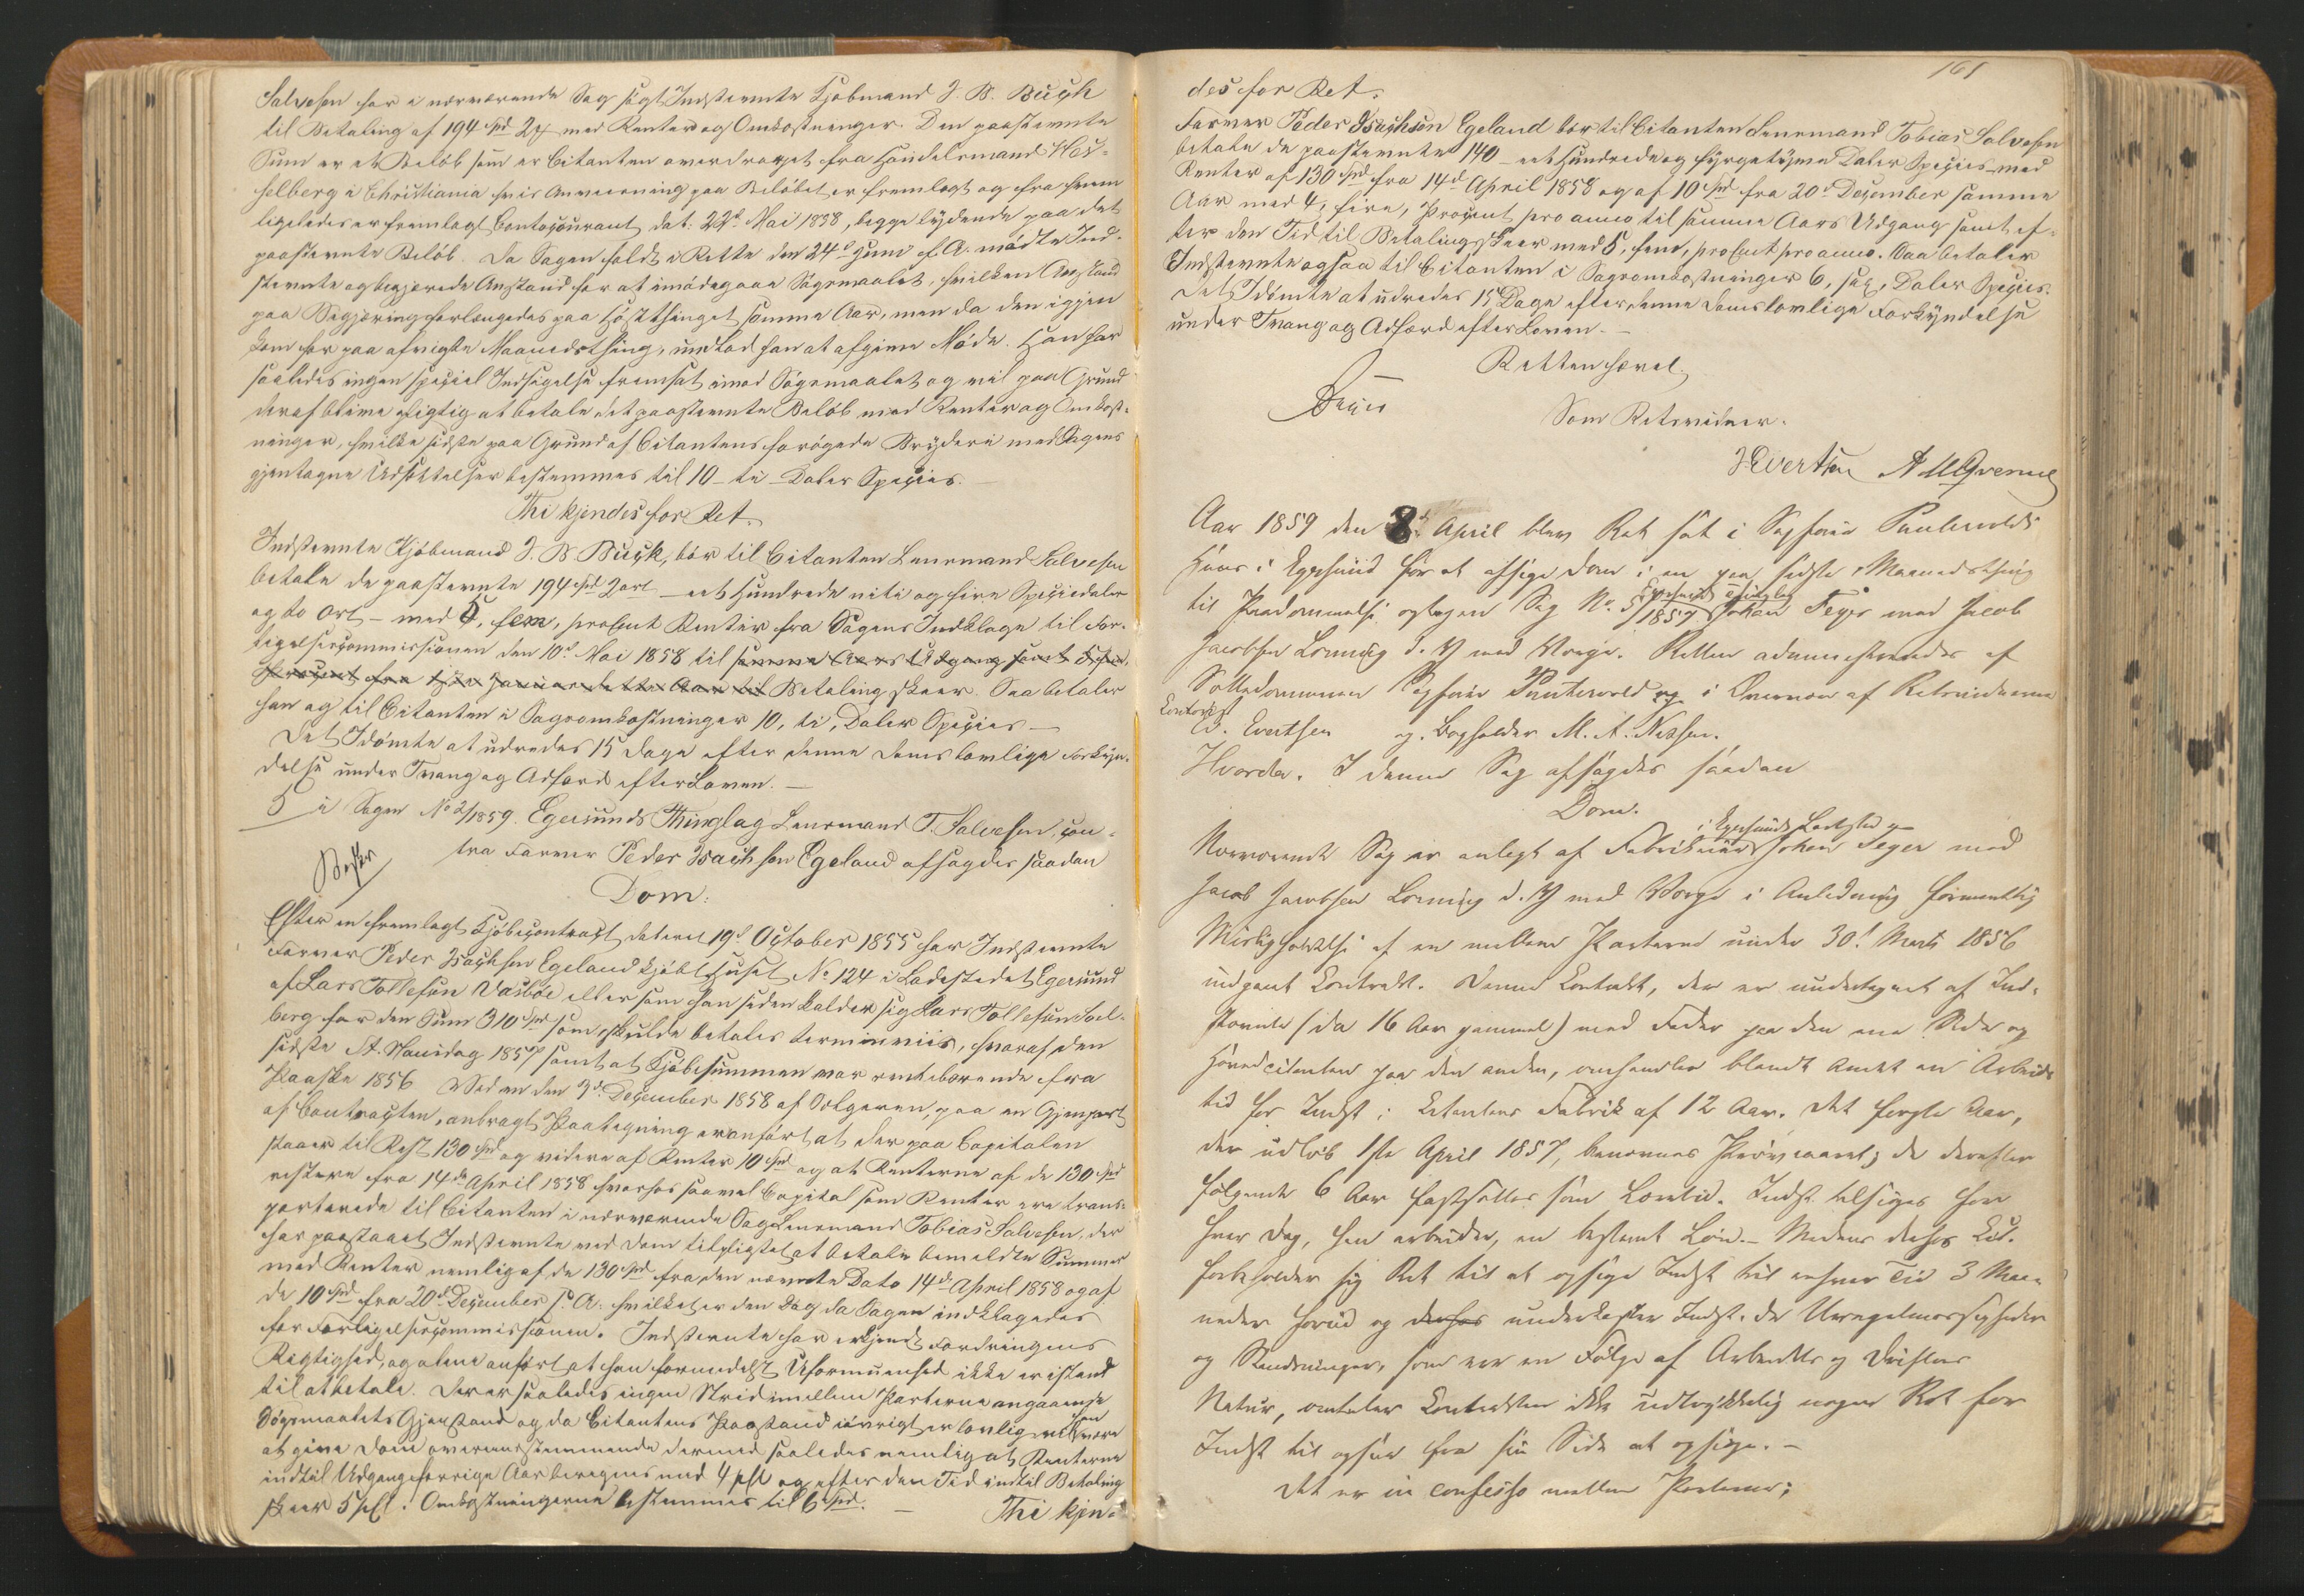 Salvesen har i nærværende Sag sigt. Indstevnte Kjøbmand J. B. Buch
til Betaling af 194 Spd 2 # med Renter og Omkostninger. Den paastevnte
Sum er et Beløb som er Citanten overdraget fra Handelsmand Has-
selberg i Christiania hvis Anviisning paa Beløbet er fremlagt og fra hvem
ligeledes er fremlagt Contocourant dat: 22d Mai 1858, begge lydende paa det
paastevnte Beløb. Da Sagen faldt i Rette den 24d Juni f. A. mødte Ind-
stevnte og begjærede Anstand for at imødegaae Søgsmaalet, hvilken Anstand
paa Begjæring forlængedes paa Høstthinget samme Aar, men da den igjen
kom for paa afvigte Maanedsthing, undlod han at afgive Møde. Han har
saaledes ingen speciel Indsigelse fremsat imod Søgsmaalet og vil paa Grund
deraf blive pligtig at betale det paastevnte Beløb med Renter og Omkost-
ninger, hvilke sidste paa Grund af Citantens forøgede Bryderi med Sagens
gjentagne Udsættelser bestemmes til 10 - ti - Daler Species. -
Thi kjendes for Ret.
Indstevnte Kjøbmand J. B. Buch, bør til Citanten Lensmand Salvesen
betale de paastevnte 194 Spd 2 ort - eet Hundrede niti og fire Speciedaler
og to Ort - med 5, fem, procent Renter fra Sagens Indklage til For-
ligelsescommissionen den 10d Mai 1858 til samme Aars Udgang samt fem
Procent fra 1ste Januar dette Aar til Betaling skeer. Saa betaler
han og til Citanten i Sagsomkostninger 10, ti, Daler Species -
Det Idømte at udredes 15 Dage efter denne Doms lovlige Forkyn-
delse under Tvang og Adfærd efter Loven. -
5 i Sagen No 2/1859. Egersunds Thinglag Lensmand T. Salvesen con-
tra Farver Peder Isachsen Egeland afsagdes saadan
Dom:
Efter en fremlagt Kjøbecontract dateret 19d October 1855 har Indstevnte
Farver Peder Isachsen Egeland kjøbt Huset No 124 i Ladestedet Egersund
af Lars Tollefsen Vasbøe eller som han siden kalder sig Lars Tollefsen Sol-
berg for den Sum 310 Spd som skulde betales terminviis, hvoraf den
sidste St. Hansdag 1857 samt at Kjøbesummen var rentebærende fra
Paaske 1856. Ved en den 9d December 1858 af Sælgeren, paa en Gjenpart
af Contracten, anbragt Paategning er anført at der paa Capitalen
staaer til Rest 130 Spd og videre af Renter 10 Spd og at Renterne af de 130 Spd
restere fra 14de April 1858 hvorhos saavel Capital som Renter ere trans-
porterede til Citanten i nærværende Sag Lensmand Tobias Salvesen, der
har paastaaet Indstevnte ved Dom tilpligtet at betale bemeldte Summer
med Renter nemlig af de 130 Spd fra den nævnte Dato 14d April 1858 og af
de 10 Spd fra 20d December s. A. hvilket er den Dag da Sagen indklagedes
for Forligelsescommissionen. Indstevnte har erkjendt Fordringens
Rigtighed, og alene anført at han formedelst Uformuenhed ikke er istand
til at betale. Der er saaledes ingen Strid imellem Parterne angaaende
Søgsmaalets Gjenstand og da Citantens Paastand iøvrigt er lovlig vil han være
at give Dom overeensstemmende dermed saaledes nemlig at Renterne
indtil Udgang forrige Aar beregnes med 4 pCt og efter den Tid indtil Betaling
skeer 5 pCt. Omkostningerne bestemmes til 6 Spd. -
Thi kjen-
161
des for Ret.
Farver Peder Isachsen Egeland bør til Citanten Lensmand Tobias Salvesen
betale de paastevnte 140 - eet Hundrede og fyrgetyve Daler Species - med
Renter af 130 Spd fra 14d April 1858 og af 10 Spd fra 20d December samme
Aar med 4, fire, Procent pro anno til samme Aars Udgang samt ef-
ter den Tid til Betaling skeer med 5, fem, proCent pro anno. Saa betaler
Indstevnte ogsaa til Citanten i Sagsomkostninger 6, sex, Daler Species.
Det Idømte at udredes 15 Dage efter denne Doms lovlige Forkyndelse
under Tvang og Adfærd efter Loven. -
Retten hævet.
Som Retsvidner.
Evertsen
Aar 1859 den 8d April blev Ret sat i Sagfører Puntervolds
Huus i Egersund for at afsige Dom i en paa sidste Maanedsthing
Egersunds Thinglag
til Paadømmelse optagen Sag No 5/1859 Johan Feyer mod Jacob
Jacobsen Lønning d. y med Værge. Retten administreredes af
Sættedommer Sagfører Puntervold og i Overvær af Retsvidnerne
Contorist
E. Evertsen og Bogholder M. A. Nissen.
Hvorda. I denne Sag afsagdes saadan
Dom.
i Egersunds Ladested
Nærværende Sag er anlagt af Fabrikeier Johan Feyer mod
Jacob Jacobsen Lønning d. y med Værge i Anledning formentlig
Misligholdelse af en mellem Parterne under 30t Marts 1856
indgaaet Contrakt. Denne Contrakt, der er undertegnet af Ind-
stevnte (da 16 Aar gammel) med Fader paa den ene Side og
Hovedcitanten paa den anden, omhandler blandt andet en Arbeids
tid for Indst. i Citantens Fabrik af 12 Aar. Det første Aar,
der udløb 1ste April 1857, benævnes Prøveaaret; de derefter
følgende 6 Aar fastsættes som Læretid. Indst. tilsiges for
hver Dag, han arbeider, en bestemt Løn. - Medens derhos Cit.
forbeholder sig Ret til at opsige Indst. til enhver Tid 3 Maa-
neder forud og derhos underkaster Indst. de Uregelmæssigheder
og Standsninger, som ere en Følge af Arbeidets og Driftens
Natur, omtaler Contrakten ikke udtrykkelig nogen Ret for
Indst. til ogsaa fra sin Side at opsige. -
Det er in confesso mellem Parterne: